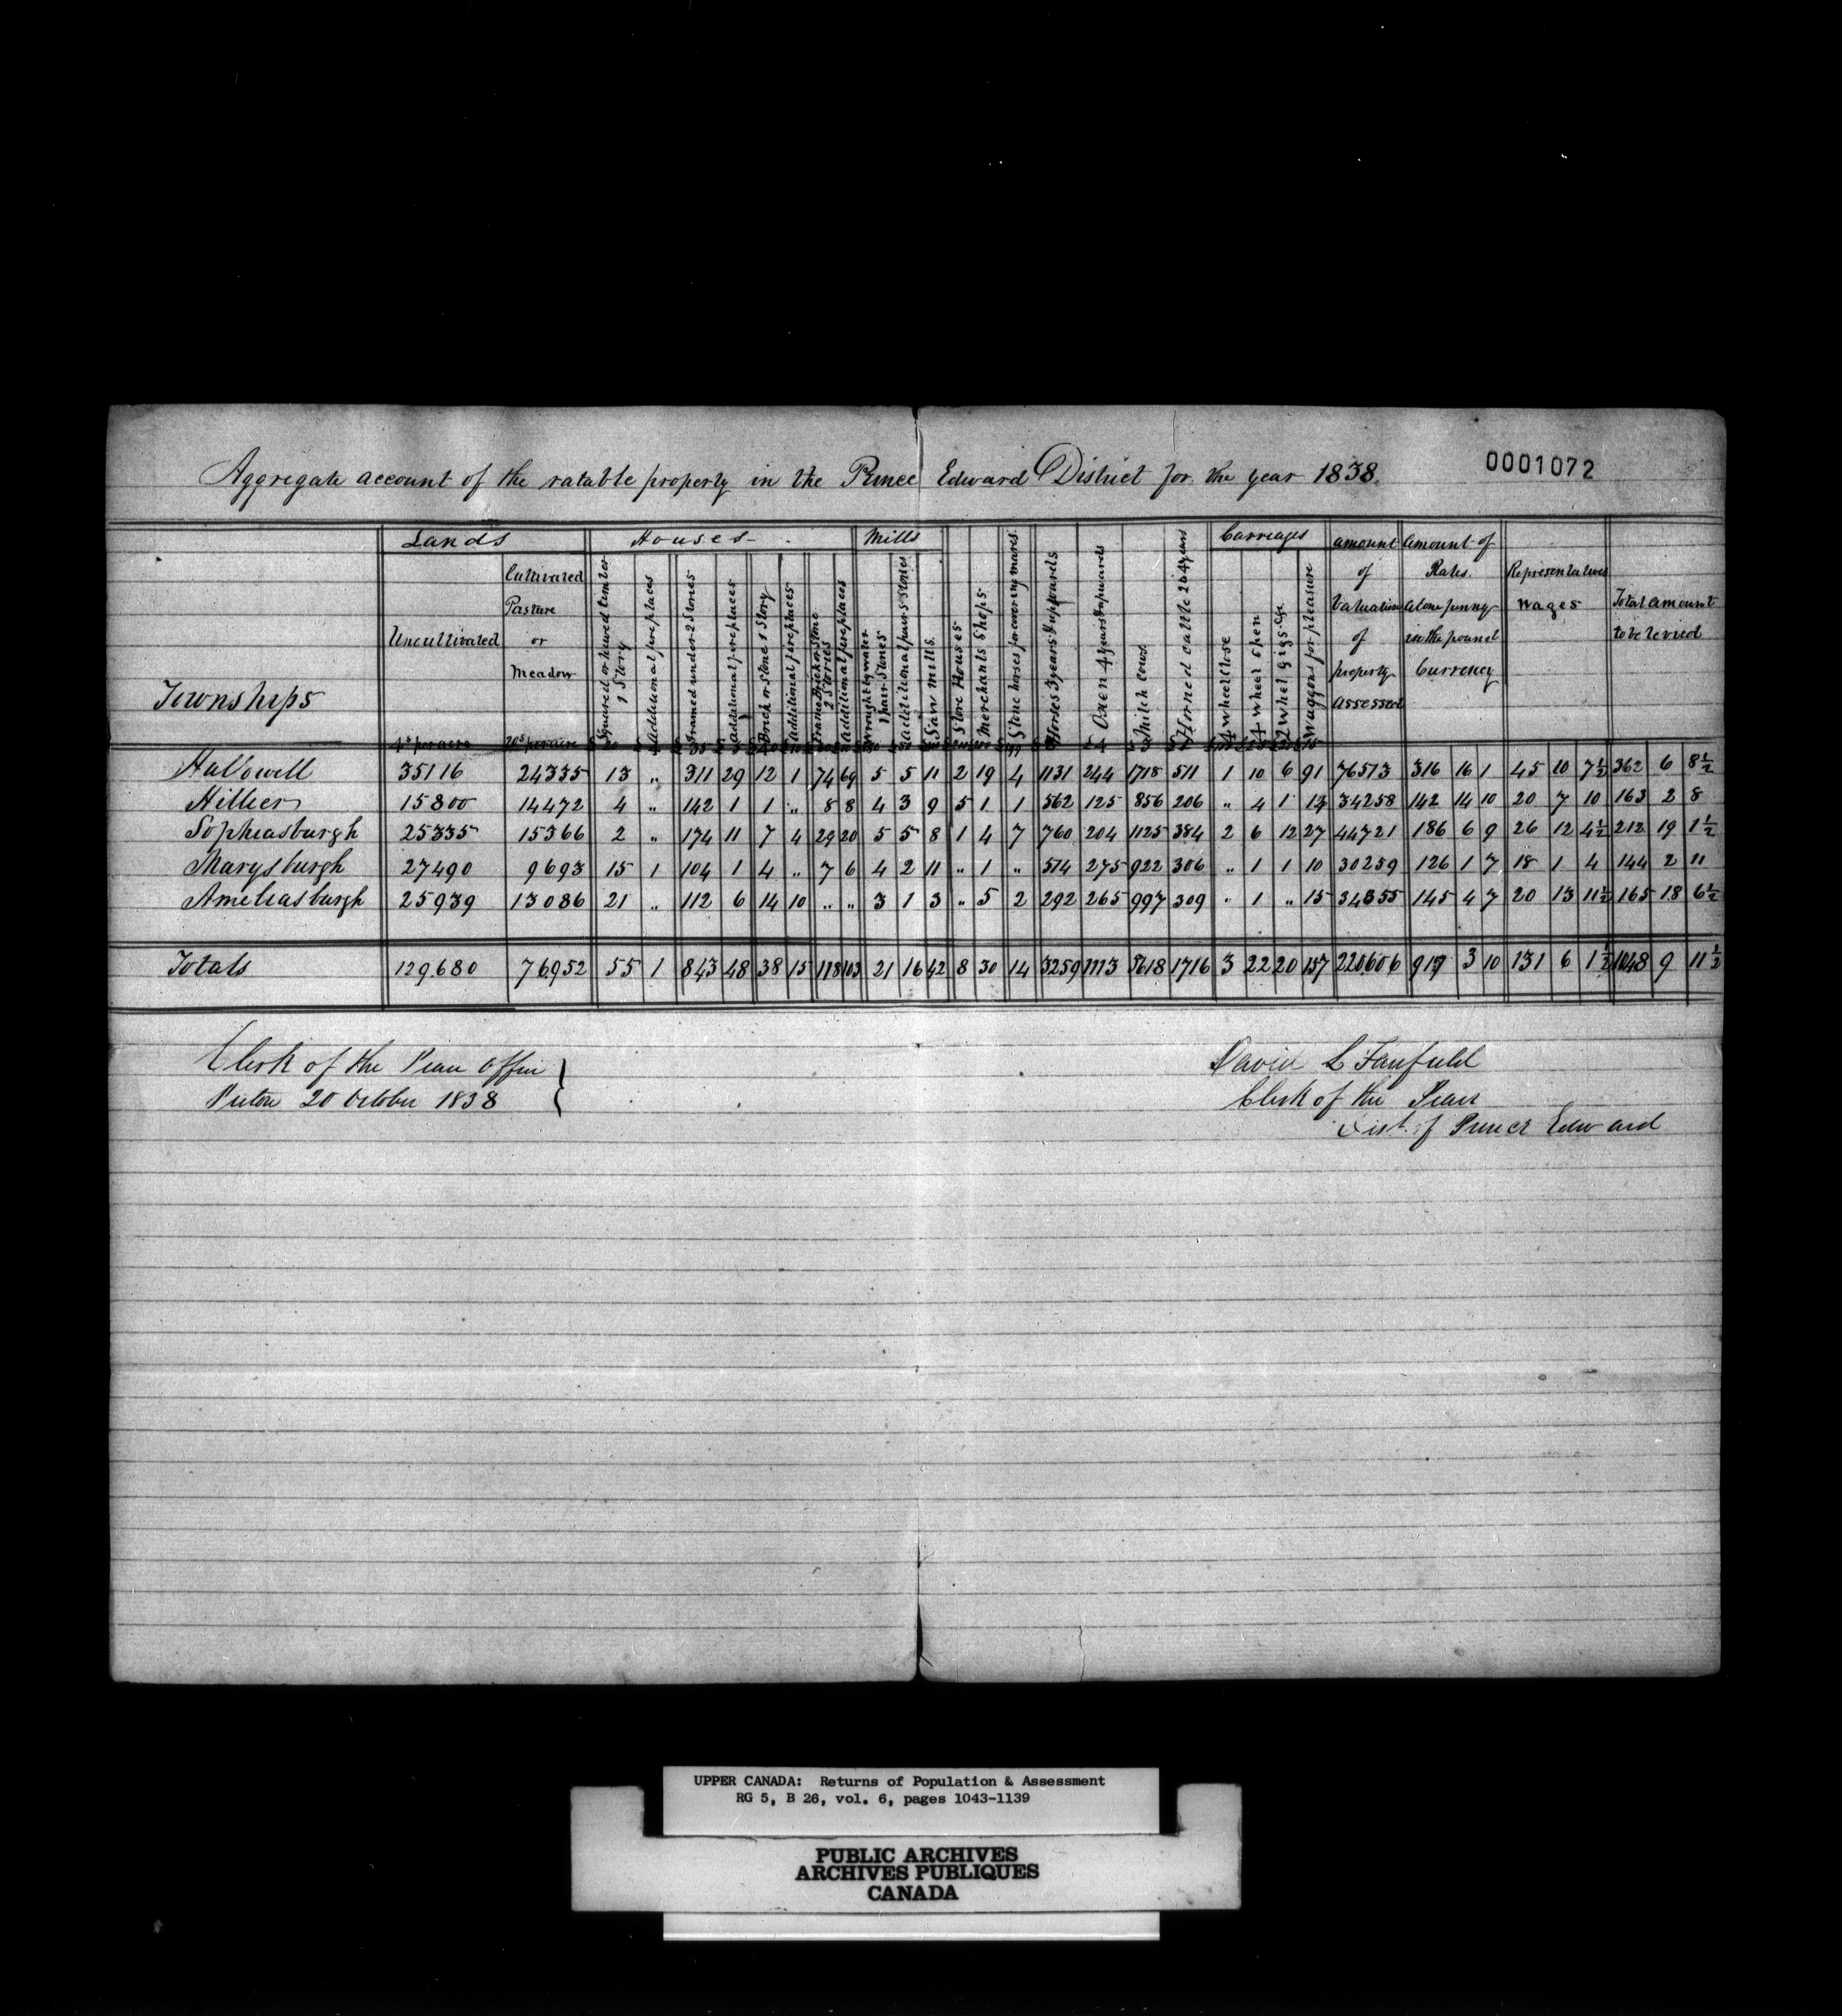 0001072
Aggregate account of the ratable property in the Prince Edward District for the year 1838.
Townships
Lands
Uncultivated
4s per acre
Cultivated Pasture or Meadow
20s per acre
Houses
Squared or hewed timber 1 Story
Additional fireplaces
Framed under 2 Stories
additional fireplaces
Brick or Stone 1 Story
additional fireplaces
Frame Brick or Stone 2 Stories
additional fireplaces
Mills
Wrought by water 1 pair Stones
Additional pairs Stones
Saw Mills.
Store Houses
Merchants Shops.
Stone horses for covering mares.
Horses 3 years & upwards
Oxen 4 years & upwards
Milch cows
Horned cattle 2 to 4 years
Carriages
4 wheel close
4 wheel open
2 wheel gigs &c
Waggons for pleasure
amount of Valuation of property assessed
Amount of Rates. at one penny in the pound Currency
Representatives Wages
Total amount to be levied
Hallowell 35116 24335 13 " 311 29 12 1 74 69 5 5 11 2 19 4 1131 244 1718 511 1 10 6 91 76513 316 16 1 45 10 7½ 362 6 8½
Hillier 15800 14472 4 " 142 1 1 " 8 8 4 3 9 5 1 1 562 125 856 206 " 4 1 14 34258 142 14 10 20 7 10 163 2 8
Sophiasburgh 25335 15366 2 " 174 11 7 4 29 20 5 5 8 1 4 7 760 204 1125 384 2 6 12 27 44721 186 6 9 26 12 4½ 212 19 1½
Marysburgh 27490 9693 15 1 104 1 4 " 7 6 4 2 11 " 1 " 514 275 922 306 " 1 1 10 30259 126 1 7 18 1 4 144 2 11
Ameliasburgh 25939 13086 21 " 112 6 14 10 " " 3 1 3 " 5 2 292 265 997 309 " 1 " 15 34855 145 4 7 20 13 11½ 165 18 6½
Totals 129,680 76952 55 1 843 48 38 15 118 103 21 16 42 8 30 14 3259 1113 5618 1716 3 22 20 157 220606 917 3 10 131 6 1½ 1048 9 11½
Clerk of the Peace Office
Picton 20 October 1838
David L Fairfield
Clerk of the Peace
Dist. of Prince Edward
UPPER CANADA: Returns of Population & Assessment
RG 5, B 26, vol. 6, pages 1043-1139
PUBLIC ARCHIVES
ARCHIVES PUBLIQUES
CANADA